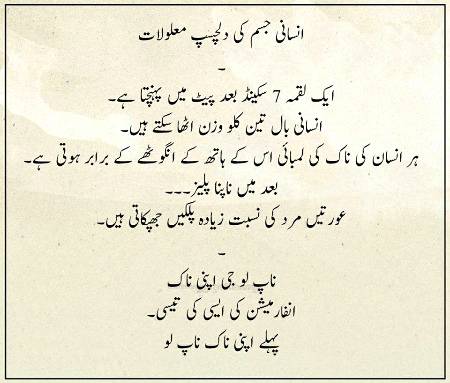 انسانی جسم کی دلچسپ معلولات
-
ایک لقمہ 7 سکینڈ بعد پیٹ میں پہنچتا ہے۔
انسانی بال تین کلو وزن اٹھا سکتے ہیں۔
ہر انسان کی ناک کی لمبائی اس کے ہاتھ کے انگوٹھے کے برابر ہوتی ہے۔
بعد میں ناپنا پلیز۔۔۔
عورتیں مرد کی نسبت زیادہ پلکیں جھپکاتی ہیں۔
-
ناپ لو جی اپنی ناک
انفارمیشن کی ایسی کی تیسی۔
پہلے اپنی ناک ناپ لو